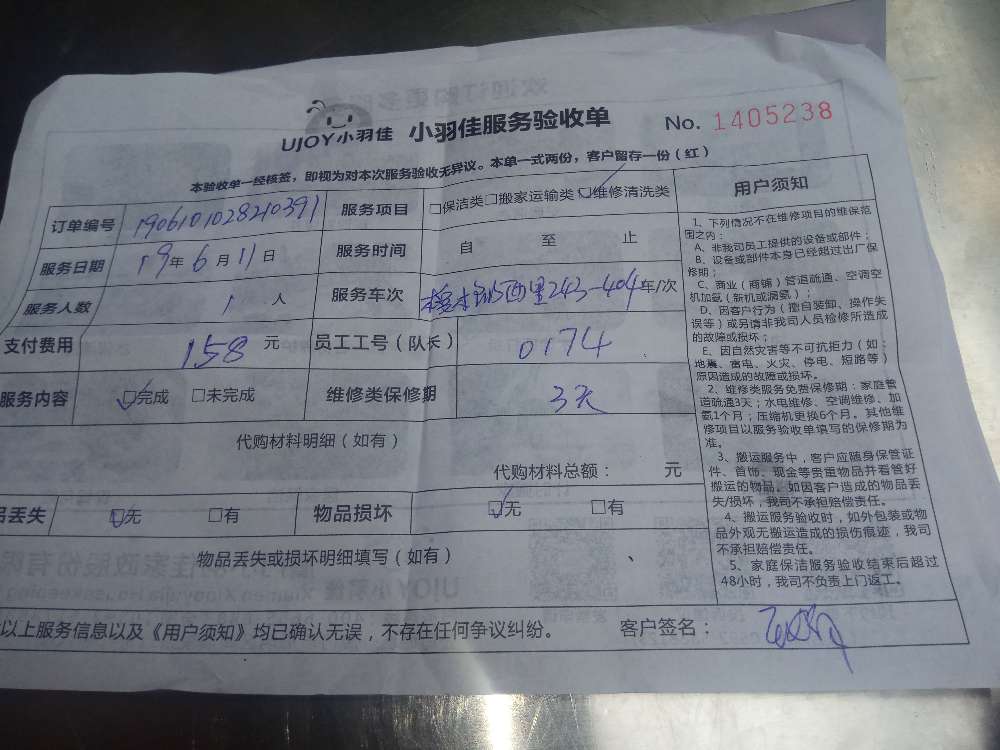 UJOY小羽佳 小羽佳服务验收单 No. 1405238
本验收单一经核签，即视为对本次服务验收无异议。本单一式两份，客户留存一份（红）
订单编号 1906101028210391 服务项目 □保洁类□搬家运输类☑维修清洗类
服务日期 19年6月11日 服务时间 自 至 止
服务人数 1 人 服务车次 西里243-404年/次
支付费用 158 元 员工工号（队长） 0174
服务内容 ☑完成 □未完成 维修类保修期 3天
代购材料明细（如有）
代购材料总额： 元
品丢失 ☑无 □有 物品损坏 ☑无 □有
物品丢失或损坏明细填写（如有） 、
以上服务信息以及《用户须知》均已确认无误，不存在任何争议纠纷。 客户签名：
用户须知
1、下列情况不在维修项目的维保范
围之内：
A、非我司员工提供的设备或部件；
B、设备或部件本身已经超过出厂保
修期；
C、商业（商铺）管道疏通、空调空
机加氨（新机或漏氨）；
D、因客户行为（擅自装卸、操作失
误等）或另请非我司人员检修所造成
的故障或损坏；
E、因自然灾害等不可抗拒力（如：
地震、雷电、火灾、停电、短路等）
原因造成的故障或损坏。
2、维修类服务免费保修期：家庭管
道疏通3天；水电维修、空调维修、加
氨1个月；压缩机更换6个月。其他维
修项目以服务验收单填写的保修期为
准。
3、搬运服务中，客户应随身保管证
件、首饰、现金等贵重物品并看管好
搬运的物品。如因客户造成的物品丢
失/损坏，我司不承担赔偿责任。
4、搬运服务验收时，如外包装或物
品外观无搬运造成的损伤痕迹，我司
不承担赔偿责任。
5、家庭保洁服务验收结束后超过
48小时，我司不负责上门返工。